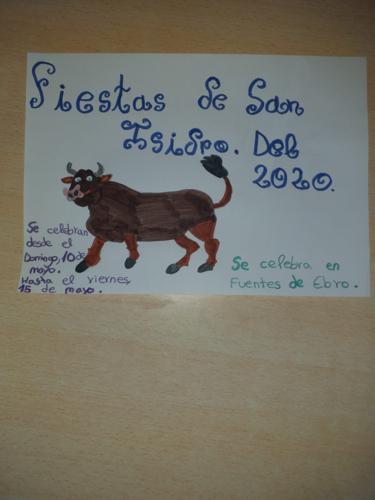 Fiestas de San
Isidro. Del
2020.
Se celebran
desde el
Domingo, 10 de
mayo.
Hasta el viernes,
15 de mayo.
Se celebra en
Fuentes de Ebro.